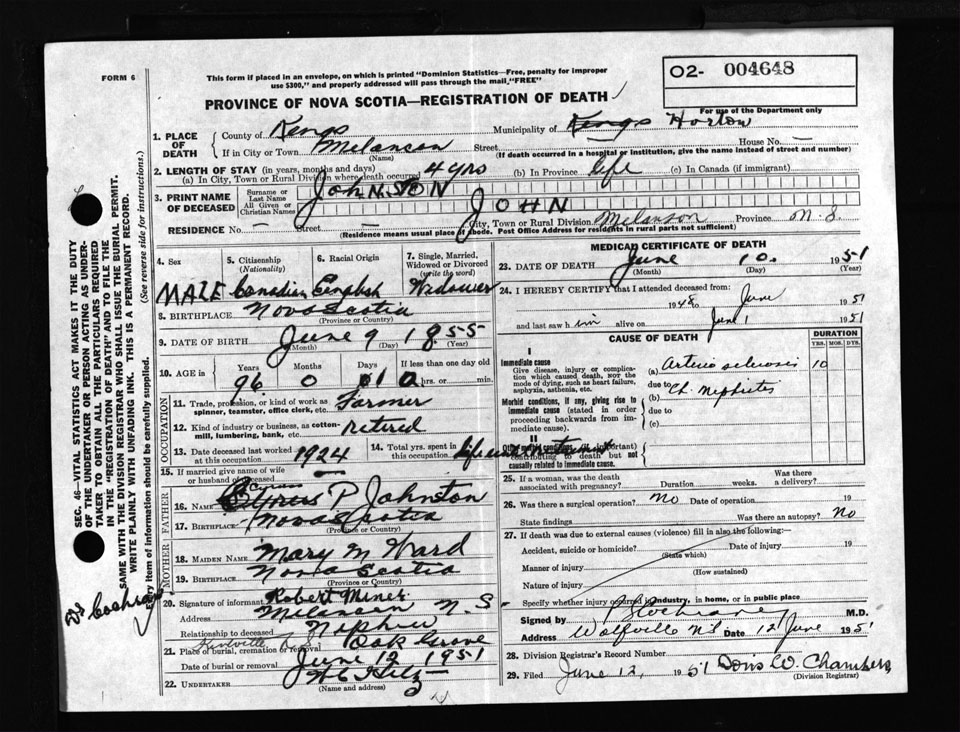 FORM 6
This form if placed in an envelope, on which is printed "Dominion Statistics—Free, penalty for improper
use $300," and properly addressed will pass through the mail "FREE"
O2- 004648
For use of the Department only
PROVINCE OF NOVA SCOTIA—REGISTRATION OF DEATH
1. PLACE OF DEATH
County of Kings Municipality of Kings Horton
If in City or Town Melanson Street House No. —
(Name) (If death occurred in a hospital or institution, give the name instead of street and number)
2. LENGTH OF STAY (in years, months and days)
(a) In City, Town or Rural Division where death occurred 4 yrs (b) In Province life (c) In Canada (if immigrant)
3. PRINT NAME OF DECEASED
Surname or Last Name JOHNSTON
All Given or Christian Names JOHN
RESIDENCE No. — Street — City, Town or Rural Division Melanson Province N. S.
(Residence means usual place of abode. Post Office Address for residents in rural parts not sufficient)
4. Sex
MALE
5. Citizenship (Nationality)
Canadian
6. Racial Origin
English
7. Single, Married, Widowed or Divorced (write the word)
Widower
8. BIRTHPLACE Nova Scotia
(Province or Country)
9. DATE OF BIRTH June 9 1855
(Month) (Day) (Year)
10. AGE in Years Months Days If less than one day old
96 0 1 hrs. or min.
OCCUPATION
11. Trade, profession, or kind of work as spinner, teamster, office clerk, etc. Farmer
12. Kind of industry or business, as cotton-mill, lumbering, bank, etc. retired
13. Date deceased last worked at this occupation 1924
14. Total yrs. spent in this occupation life
15. If married give name of wife or husband of deceased
FATHER
16. NAME Cyrus P Johnston
Cyrus
17. BIRTHPLACE Nova Scotia
(Province or Country)
MOTHER
18. MAIDEN NAME Mary M Ward
19. BIRTHPLACE Nova Scotia
(Province or Country)
20. Signature of informant Robert Miner
Address Melanson N. S
Relationship to deceased Nephew
21. Place of burial, cremation or removal Kentville Oak Grove
Date of burial or removal June 12 1951
22. UNDERTAKER
(Name and address)
MEDICAL CERTIFICATE OF DEATH
23. DATE OF DEATH June 10. 1951
(Month) (Day) (Year)
24. I HEREBY CERTIFY that I attended deceased from:
1948 to June 1951
and last saw him alive on June 1 1951
CAUSE OF DEATH
DURATION
YRS. MOS. DYS.
I
Immediate cause
Give disease, injury or complication which caused death, not the mode of dying, such as heart failure, asphyxia, asthenia, etc.
(a) Arterio sclerosis 10
due to
Morbid conditions, if any, giving rise to immediate cause (stated in order proceeding backwards from immediate cause).
(b) Ch. Nephritis
due to
(c)
II
Other morbid conditions (if important) contributing to death but not causally related to immediate cause.
25. If a woman, was the death associated with pregnancy? Duration weeks. Was there a delivery?
26. Was there a surgical operation? No Date of operation 19
State findings Was there an autopsy? No
27. If death was due to external causes (violence) fill in also the following:—
Accident, suicide or homicide? Date of injury 19
(State which)
Manner of injury
(How sustained)
Nature of injury
Specify whether injury occurred in industry, in home, or in public place
Signed by Cochrane M.D.
Address Wolfville NS Date 12 June 1951
28. Division Registrar's Record Number
29. Filed June 12, 1951 Doris W. Chambers
(Division Registrar)
SEC. 46—VITAL STATISTICS ACT MAKES IT THE DUTY
OF THE UNDERTAKER OR PERSON ACTING AS UNDER-
TAKER TO OBTAIN ALL THE PARTICULARS REQUIRED
IN THE "REGISTRATION OF DEATH" AND TO FILE THE
SAME WITH THE DIVISION REGISTRAR WHO SHALL ISSUE THE BURIAL PERMIT.
WRITE PLAINLY WITH UNFADING INK. THIS IS A PERMANENT RECORD.
Every item of information should be carefully supplied. (See reverse side for instructions.)
Dr Cochrane